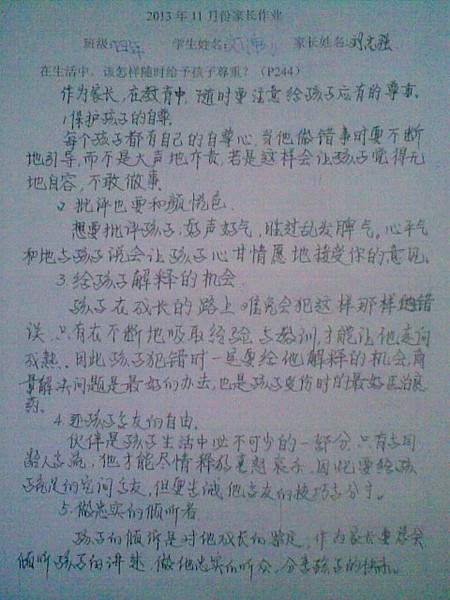 2013年11月份家长作业
班级：四 学生姓名： 家长姓名：刘志强
在生活中，该怎样随时给予孩子尊重？（P244）
作为家长，在教育中，随时要注意给孩子应有的尊重。
1.保护孩子的自尊
每个孩子都有自己的自尊心，当他做错事时要不断
地引导，而不是大声地斥责，若是这样会让孩子觉得无
地自容，不敢做事。
2.批评也要和颜悦色
想要批评孩子，好声好气，胜过乱发脾气。心平气
和地与孩子说会让孩子心甘情愿地接受你的意见。
3.给孩子解释的机会
孩子在成长的路上难免会犯这样那样的错
误，只有在不断地吸取经验与教训，才能让他走向
成熟。因此孩子犯错时一定要给他解释的机会，商
量解决问题是最好的办法，也是孩子受伤时的最好医治良
药。
4.还孩子交友的自由
伙伴是孩子生活中必不可少的一部分，只有与同
龄人交流，他才能尽情释放喜怒哀乐，因此要给孩
子充足的空间交友，但要告诫他交友的技巧与分寸。
5.做忠实的倾听者
孩子的倾诉是对他成长的肯定，作为家长要学会
倾听孩子的讲述，做他忠实的听众，分享孩子的快乐。